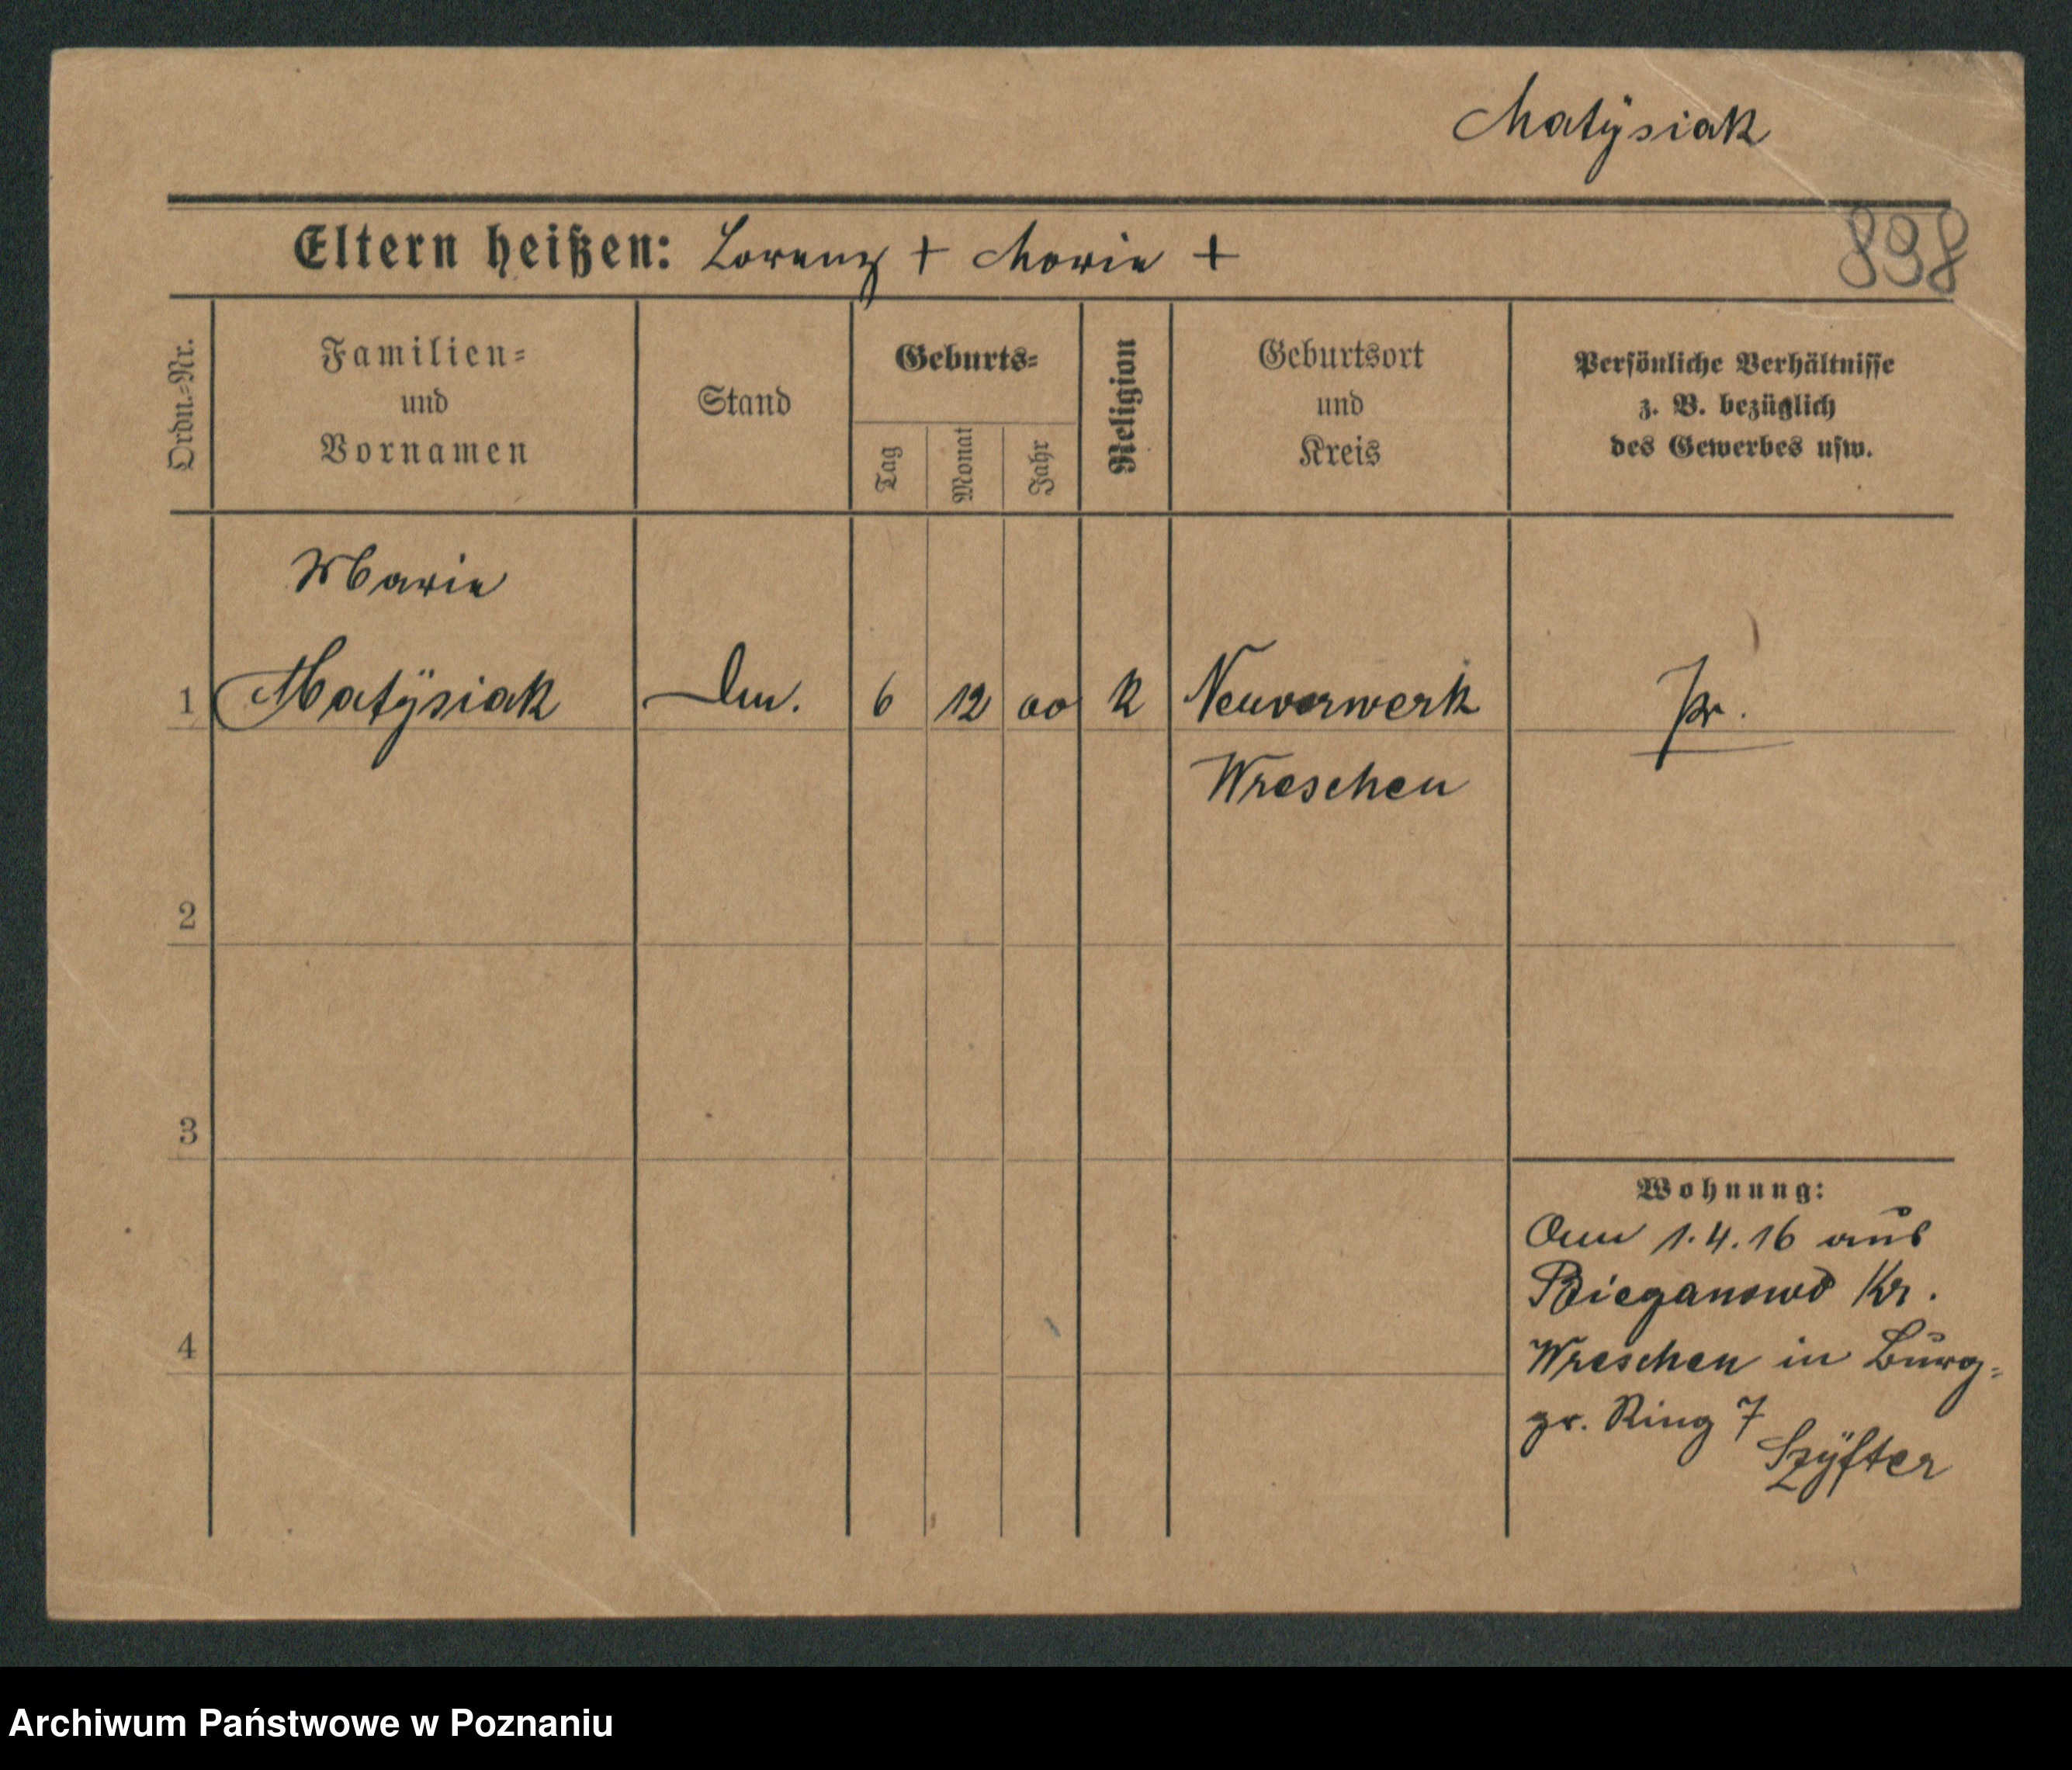 Matÿsiak
Eltern heißen: Lorenz + Marie +
898
Ordn.-Nr.
Familien-
und
Vornamen
Stand
Geburts-
Tag
Monat
Jahr
Religion
Geburtsort
und
Kreis
Persönliche Verhältnisse
z. B. bezüglich
des Gewerbes usw.
Marie
1 Matÿsiak 6 12 00 k Neuvorwerk pr.
Wreschen
2
3
4
Wohnung:
1.4.16 aus
Bieganowo Kr.
Wreschen in Burg-
gr. Ring 7
Szÿfter
Archiwum Państwowe w Poznaniu